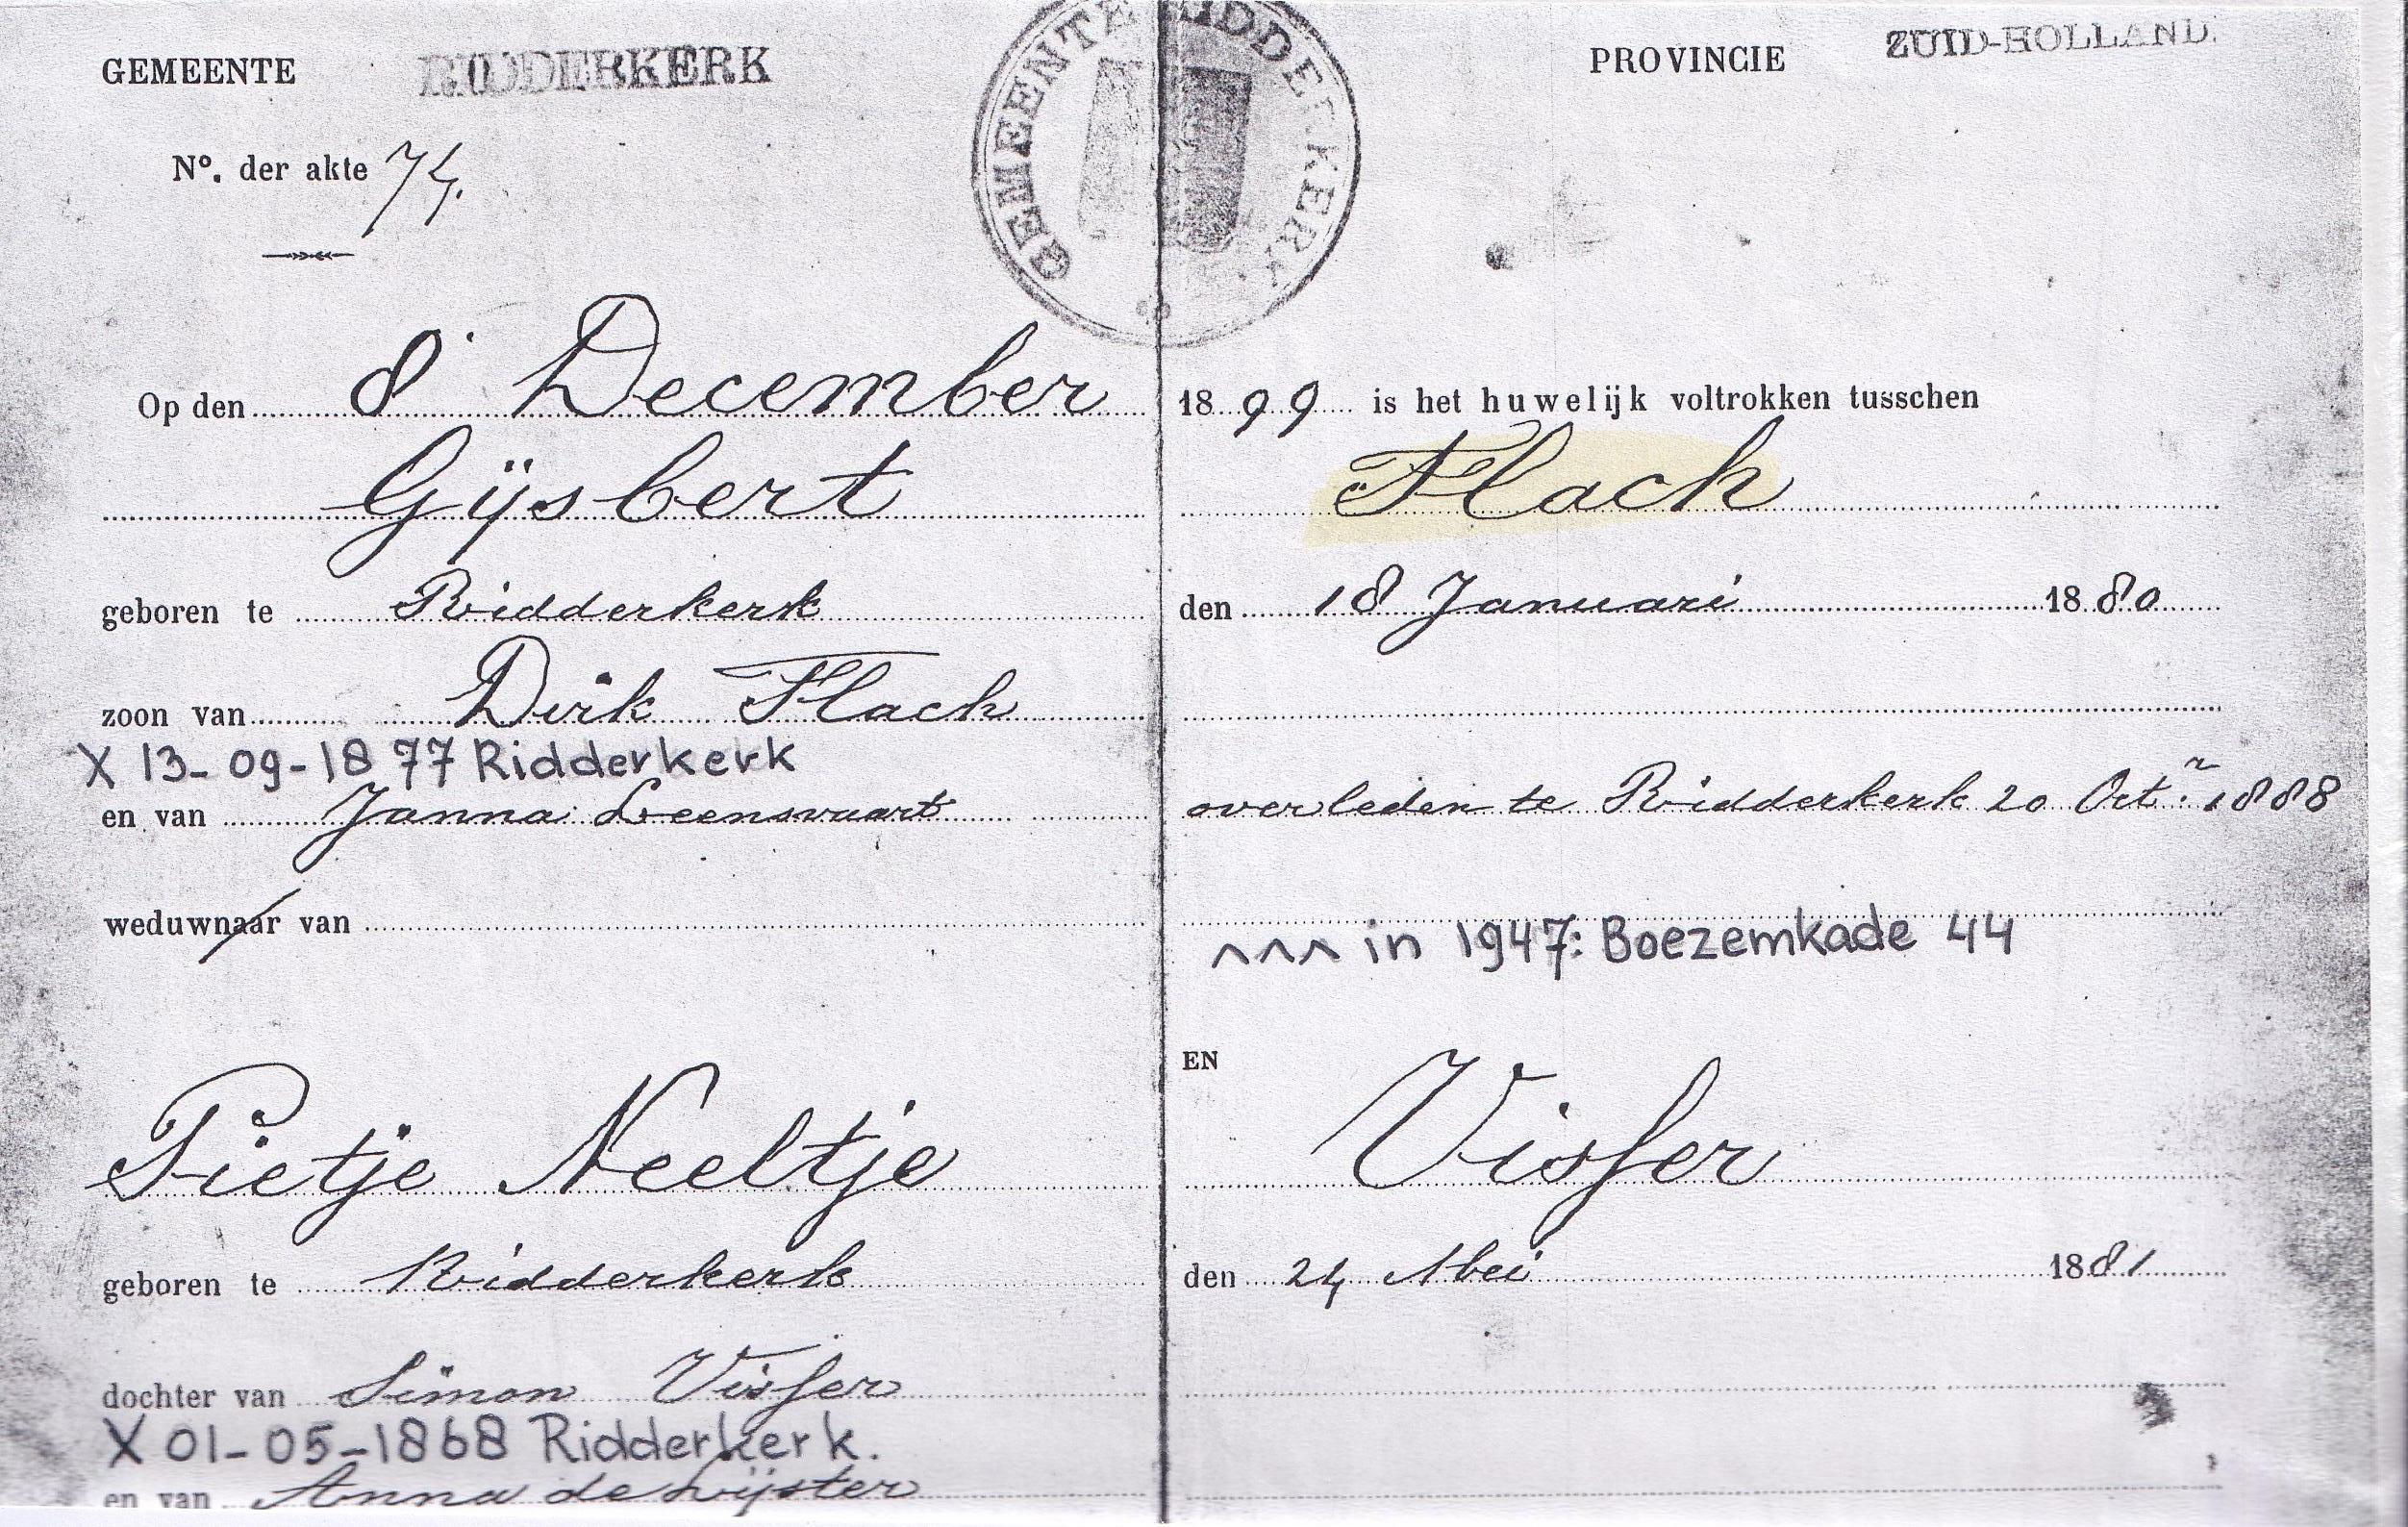 GEMEENTE RIDDERKERK PROVINCIE ZUID-HOLLAND.
GEMEENTE RIDDERKERK
Nº. der akte 74.
Op den 8 December 1899 is het huwelijk voltrokken tusschen
Gijsbert Flach
geboren te Ridderkerk den 18 Januari 1880
zoon van Dirk Flach
X 13-09-1877 Ridderkerk
en van Janna Leenswaart overleden te Ridderkerk 20 Oct. 1888
weduwnaar van
in 1947: Boezemkade 44
EN
Pietje Neeltje Visser
geboren te Ridderkerk den 24 Mei 1881
dochter van Simon Visser
X 01-05-1868 Ridderkerk.
en van Anna de Lijster